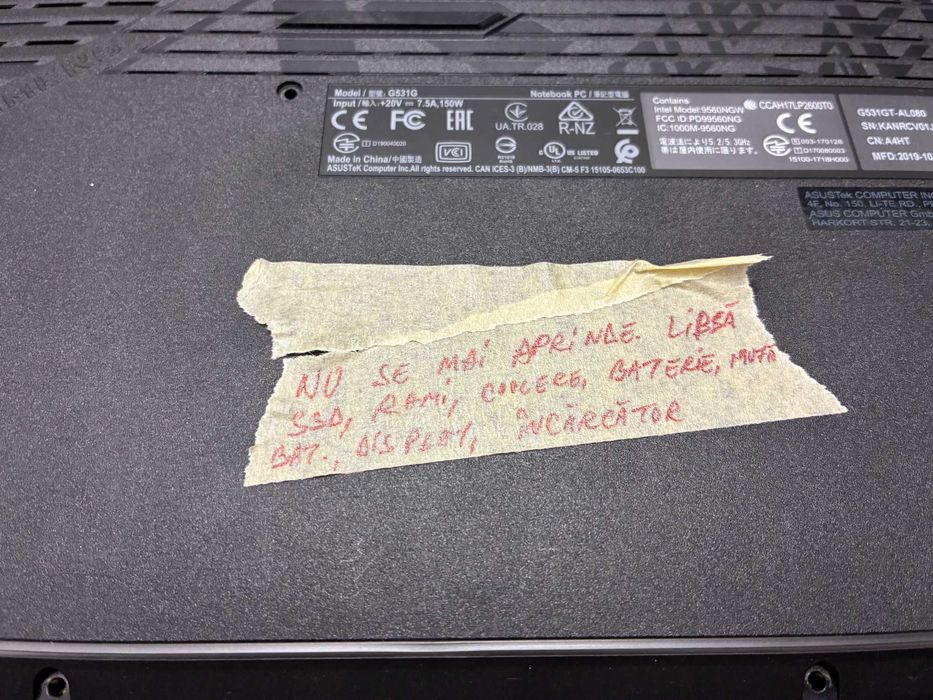 Model / 型號: G531G
Notebook PC / 筆記型電腦
Input / 輸入: +20V ⎓ 7.5A, 150W
CE FC EAC
UA.TR.028
R-NZ
D190040020
VCCI
UL US LISTED
Made in China/中國製造
ASUSTeK Computer Inc. All rights reserved. CAN ICES-3 (B)/NMB-3(B) CM-5 F3 15105-0653C100
Contains
Intel Model: 9560NGW
CCAH17LP2600T0
FCC ID: PD99560NG
IC: 1000M-9560NG
CE
電波法により5.2/5.3GHz
帯は屋内使用に限ります。
R 003-170126
T D170080003
15100-1718H000
G531GT-AL080
SN: KANRCV01J
CN: A4HT
MFD: 2019-10
ASUSTek COMPUTER INC
4F, No. 150, Li-TE RD., PE
ASUS COMPUTER Gmb
HARKORT STR. 21-23,
NU SE MAI APRINDE. LIBSĂ
SSD, RAMI, COOLERE, BATERIE, MUFĂ
BAT., DISPLAY, ÎNCĂRCĂTOR